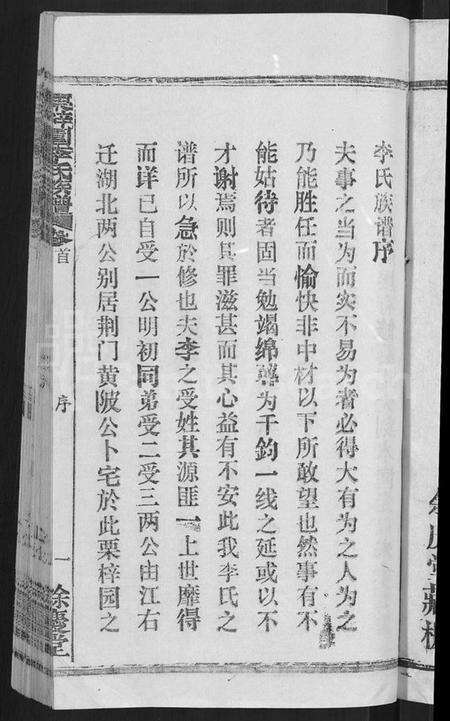 李氏族谱序
夫事之当为而实不易为者必得大有为之人为之
乃能胜任而愉快非中材以下所敢望也然事有不
能姑待者固当勉竭绵薄为千钧一线之延或以不
才谢焉则其罪滋甚而其心益有不安此我李氏之
谱所以急於修也夫李之受姓其源匪一上世靡得
而详已自受一公明初同弟受二受三两公由江右
迁湖北两公别居荆门黄陂公卜宅於此栗梓园之
栗梓園李氏族譜
卷首
序
一
余慶堂
余慶堂藏板